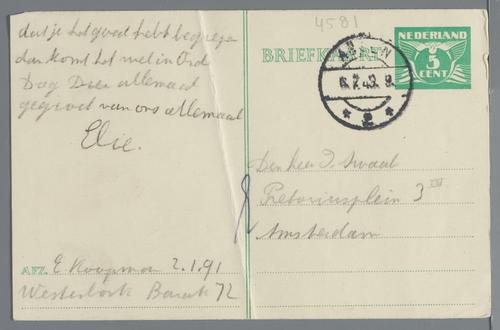 4581
dat je het goed hebt begrepen
dan komt het wel in Ord
Dag Dien allemaal
gegroet van ons allemaal
Elie.
AFZ. E Koopman 2.1.91
Westerbork Barak 72
BRIEFKAART
NEDERLAND
5
CENT
ASSEN
6.7.43. 9
2
Den Heer J. Swaab
Pretoriusplein 3 III
Amsterdam